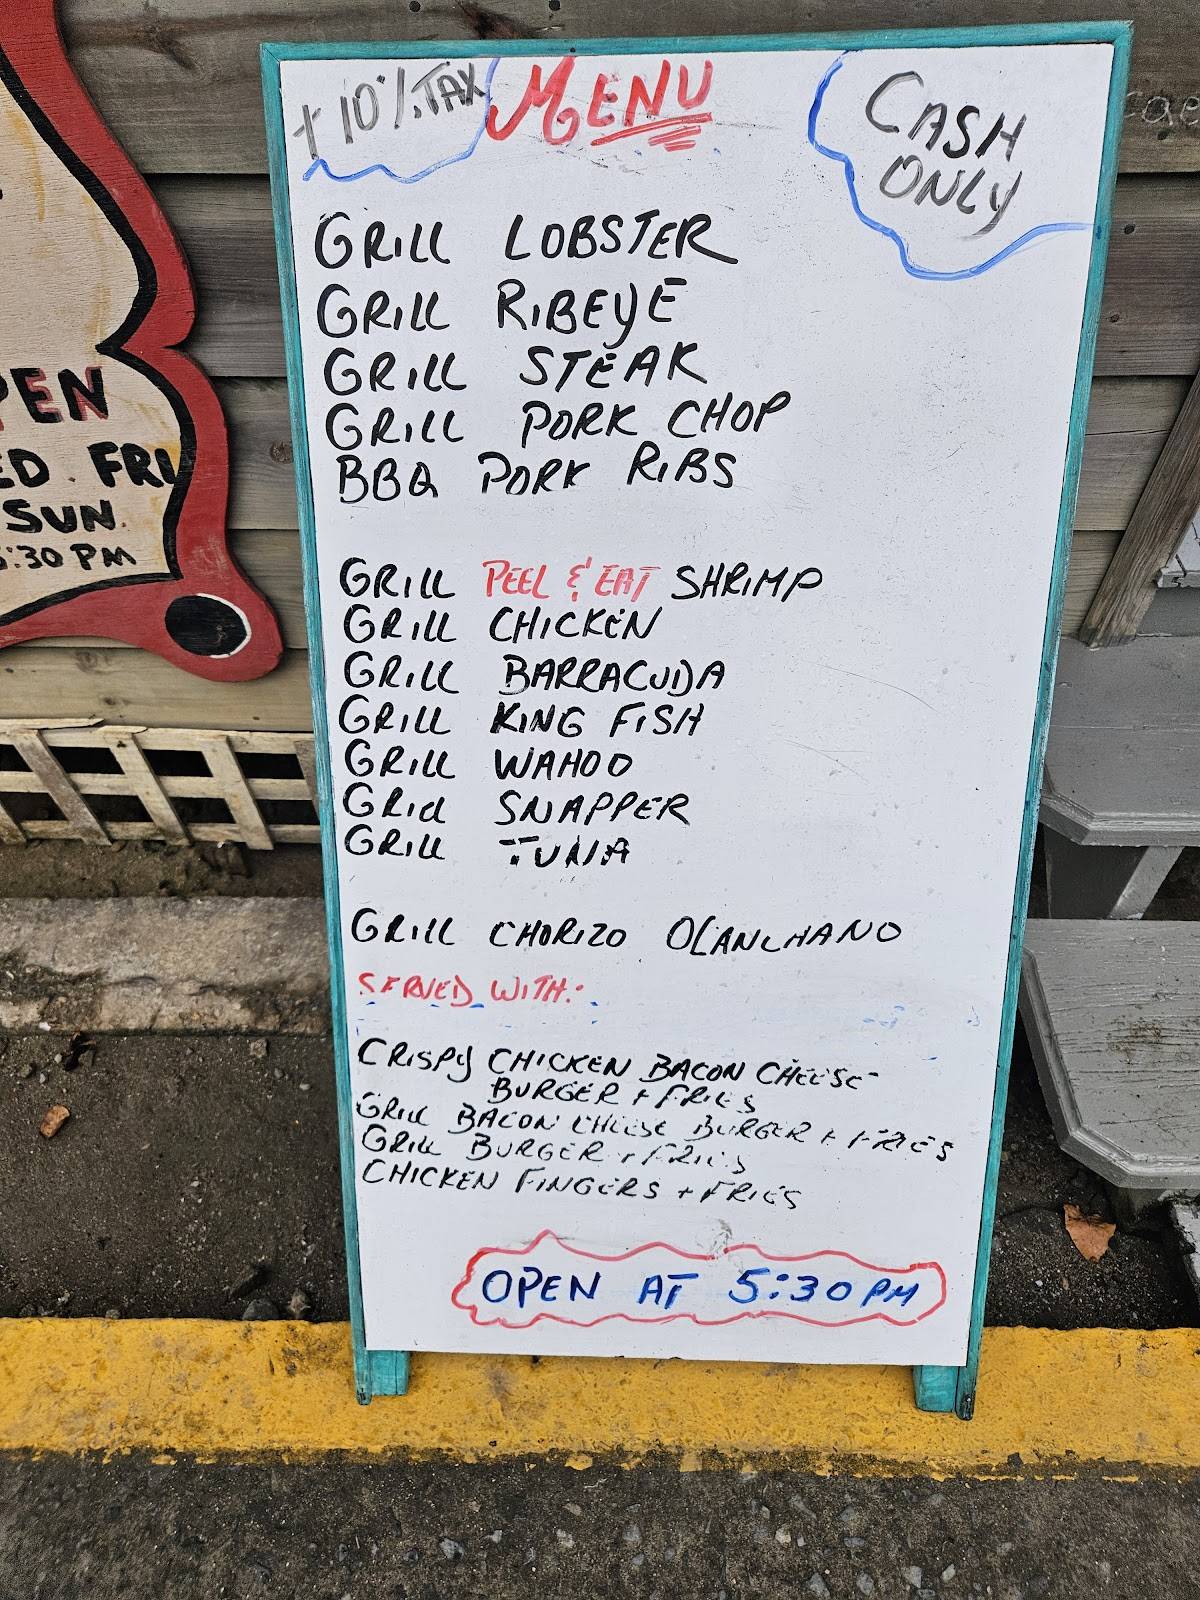 + 10% TAX
MENU
CASH
ONLY
GRILL LOBSTER
GRILL RIBEYE
GRILL STEAK
GRILL PORK CHOP
BBQ PORK RIBS
GRILL PEEL & EAT SHRIMP
GRILL CHICKEN
GRILL BARRACUDA
GRILL KING FISH
GRILL WAHOO
GRILL SNAPPER
GRILL TUNA
GRILL CHORIZO OLANCHANO
SERVED WITH:
CRISPY CHICKEN BACON CHEESE
BURGER + FRIES
GRILL BACON CHEESE BURGER + FRIES
GRILL BURGER + FRIES
CHICKEN FINGERS + FRIES
OPEN AT 5:30 PM
PEN
ED. FRI
SUN.
5:30 PM